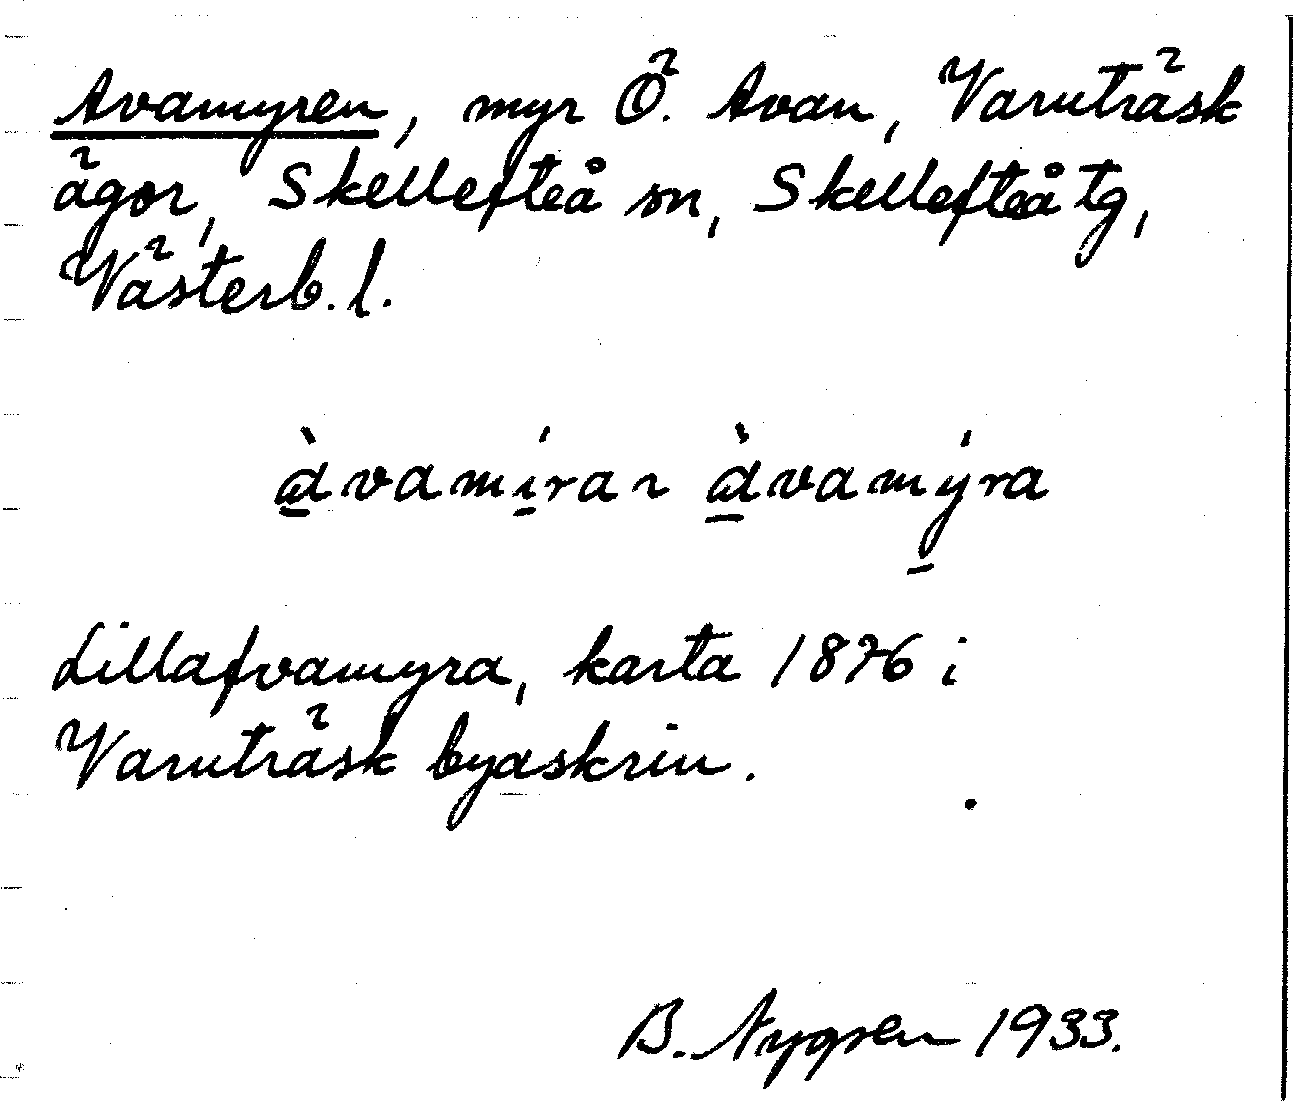 Avamyren, myr Ö. Avan, Varuträsk
ägor, Skellefteå sn, Skellefteå tg,
Västerb. l.
àvamíra ~ àvamýra
Lillafvamyra, karta 1876 i
Varuträsk byaskrin.
B. Nygren 1933.